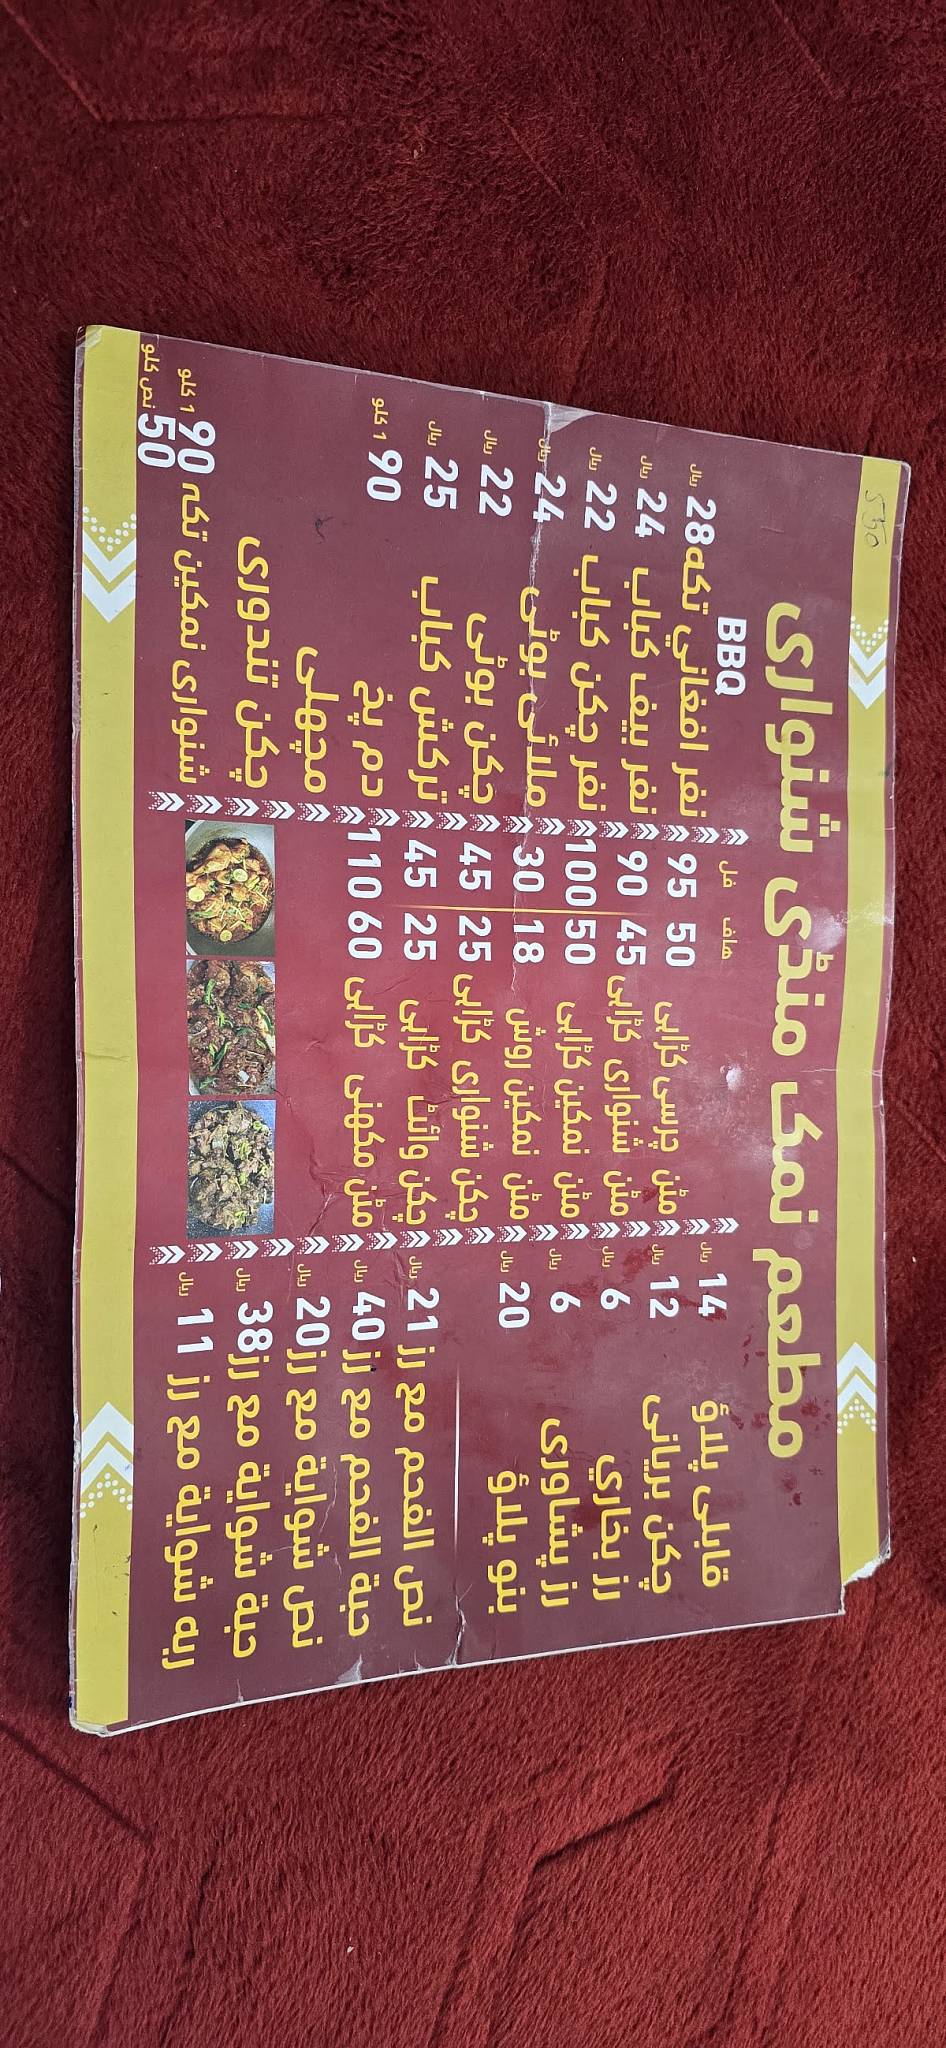 مطعم نمک منڈی شنواری
قابلی پلاؤ 14 ریال
چکن بریانی 12 ریال
رز بخاري 6 ریال
رز پشاوری 6 ریال
بنو پلاؤ 20 ریال
نص الفحم مع رز 21 ریال
حبة الفحم مع رز 40 ریال
نص شواية مع رز 20 ریال
حبة شواية مع رز 38 ریال
ربه شواية مع رز 11 ریال
هاف فل
مٹن چرسی کڑاہی 50 95
مٹن شنواری کڑاہی 45 90
مٹن نمکین کڑاہی 50 100
مٹن نمکین روش 18 30
چکن شنواری کڑاہی 25 45
چکن وائٹ کڑاہی 25 45
مٹن مکھنی کڑاہی 60 110
BBQ
نفر افغاني تکہ 28 ریال
نفر بیف کباب 24 ریال
نفر چکن کباب 22 ریال
ملائی بوٹی 24 ریال
چکن بوٹی 22 ریال
ترکش کباب 25 ریال
دم پخ 90 1 کلو
مچھلی
چکن تندوری
شنواری نمکین تکہ 90 1 کلو
50 نص کلو